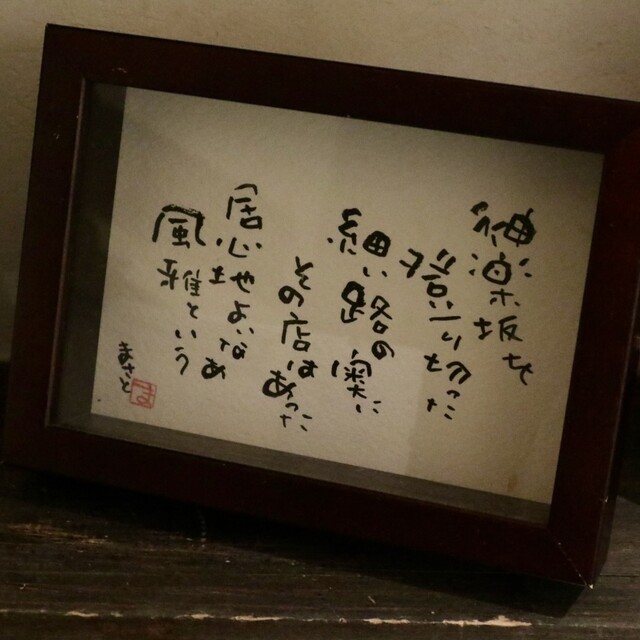 神楽坂を
登り切った
細い路の奥に
その店はあった
居心地よいなぁ
風雅という
まさと